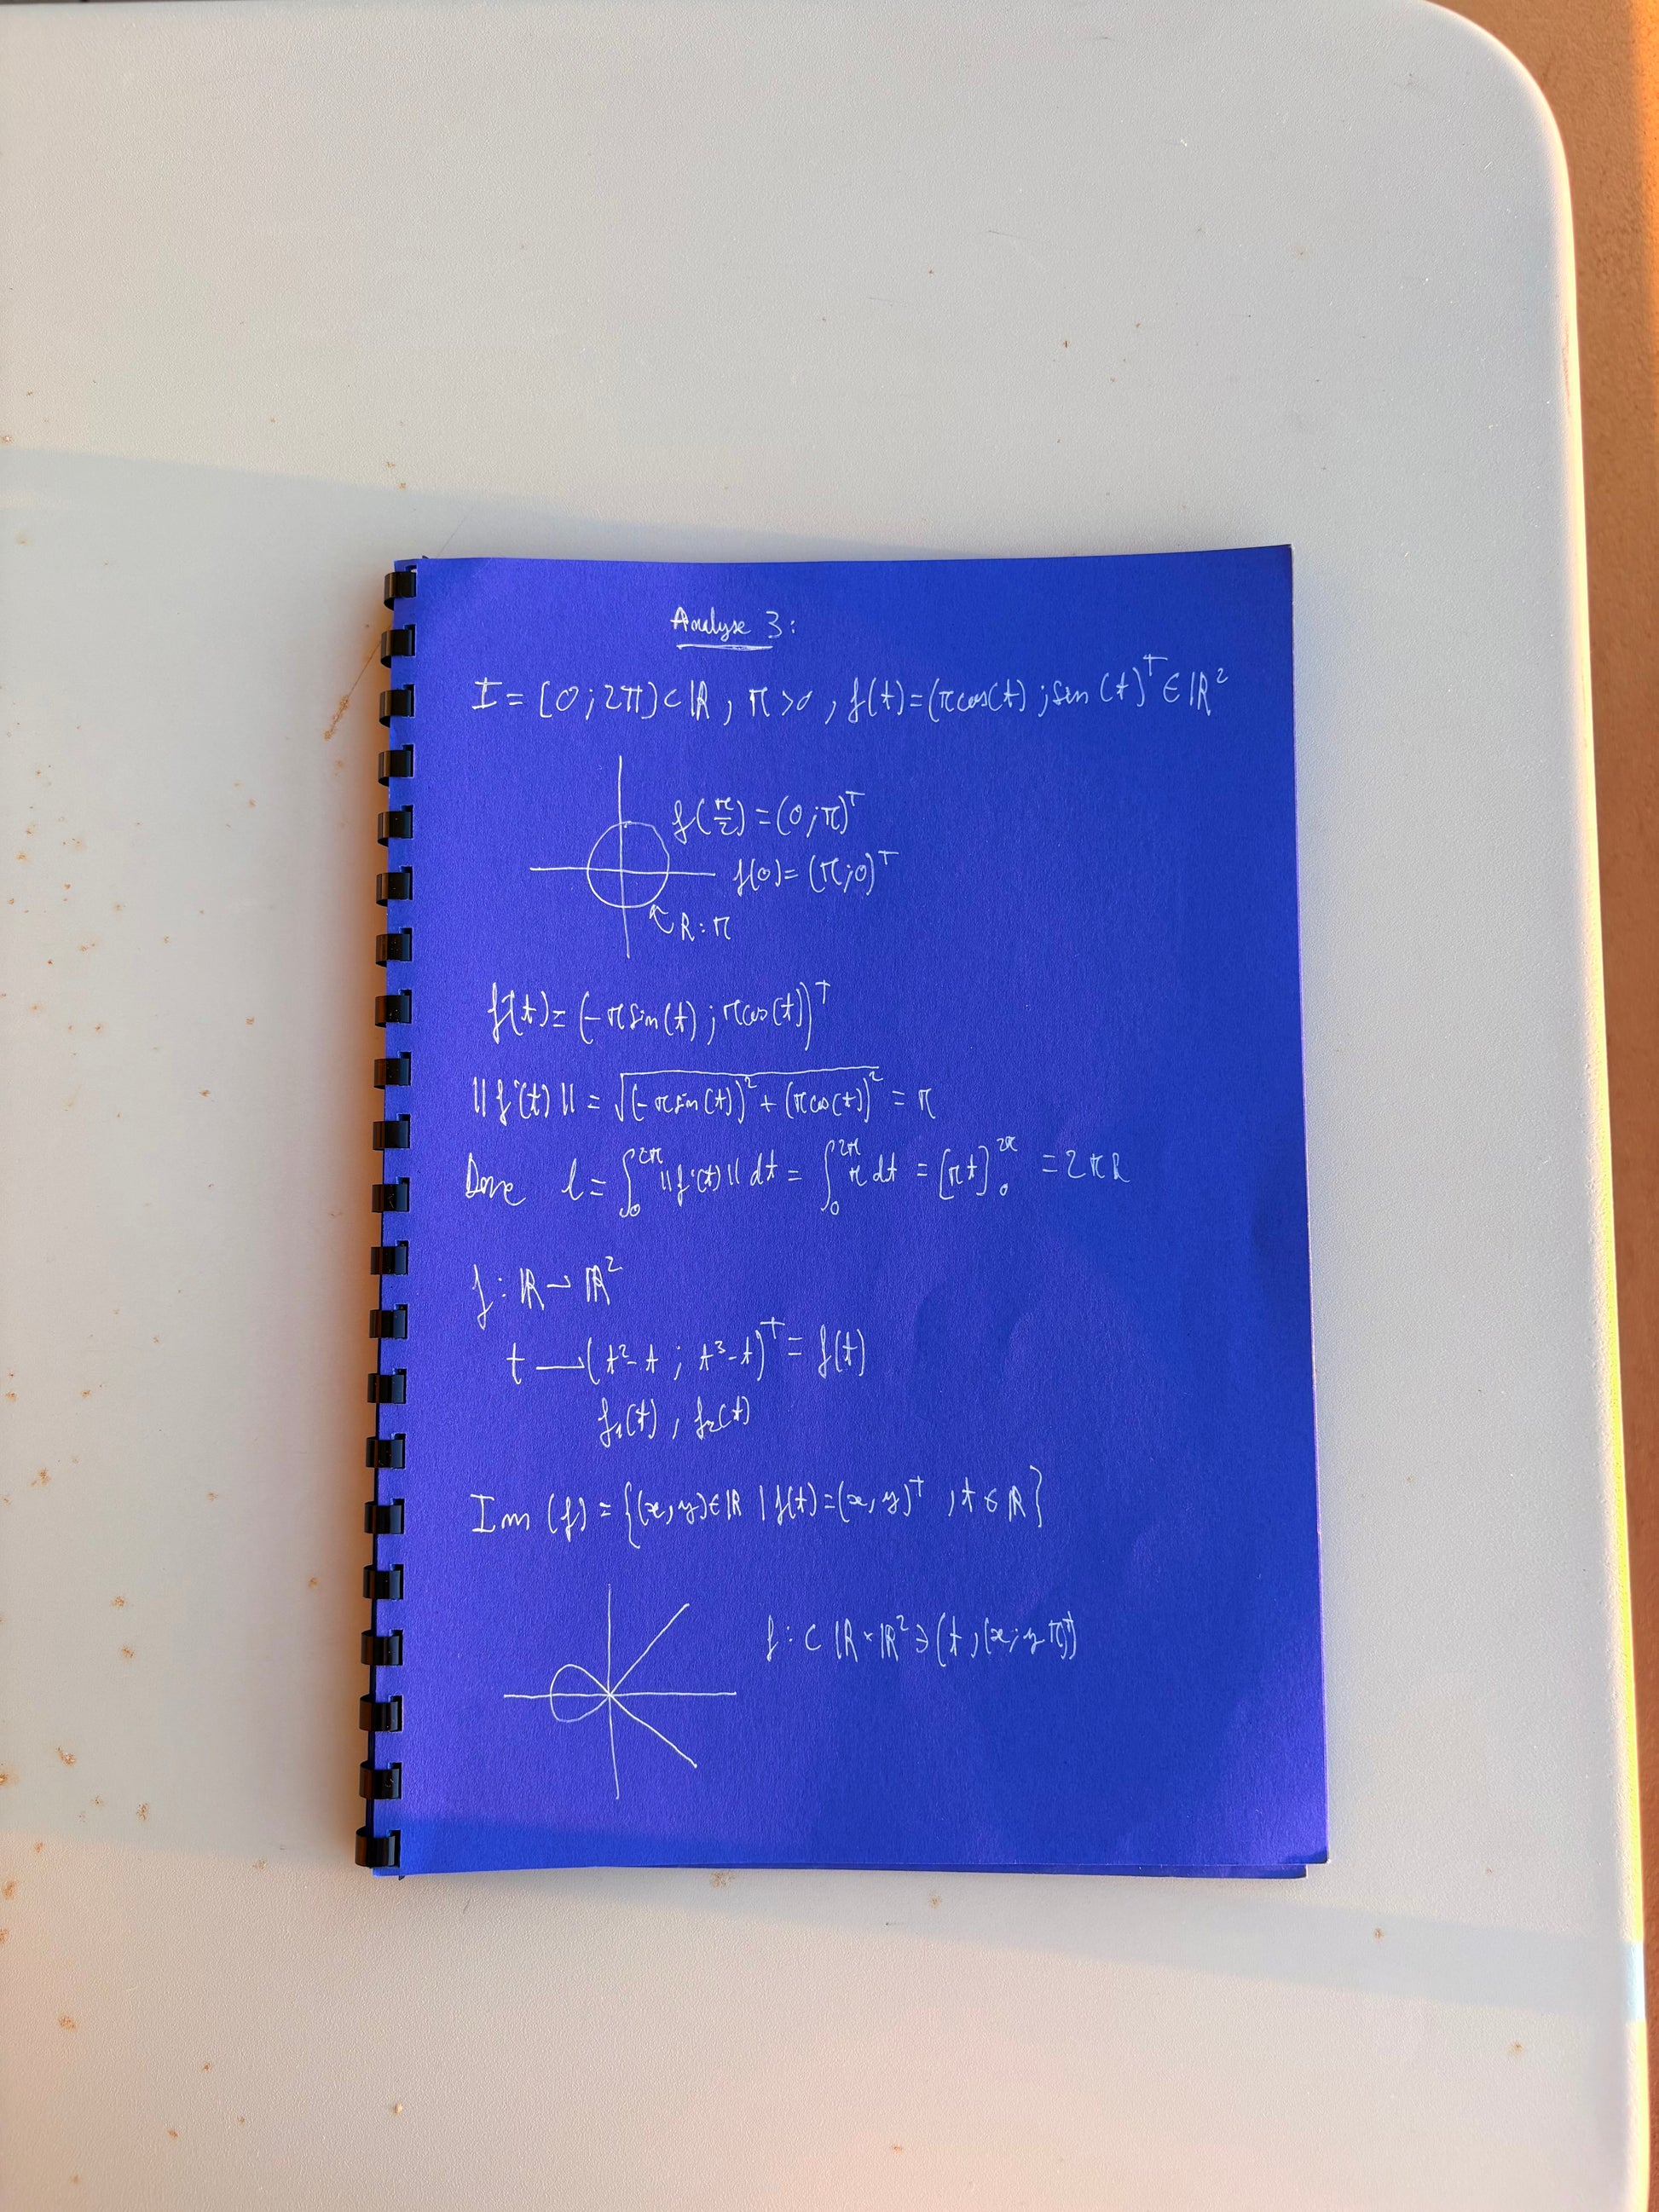 Analyse 3:
I = [0; 2π) ⊂ ℝ, π > 0, f(t) = (π cos(t) ; sin (t)ᵀ ∈ ℝ²
f(π/2) = (0; π)ᵀ
f(0) = (π; 0)ᵀ
R: π
f'(t) = (- π sin(t) ; π cos(t))ᵀ
||f'(t)|| = √((- π sin(t))² + (π cos(t))²) = π
Donc l = ∫₀^2π ||f'(t)|| dt = ∫₀^2π π dt = [πt]₀^2π = 2πR
f : ℝ → ℝ²
t → (t² - t ; t³ - t)ᵀ = f(t)
f₁(t) , f₂(t)
Im (f) = {(x, y) ∈ ℝ | f(t) = (x, y)ᵀ , t ∈ ℝ}
f : ⊂ ℝ × ℝ² ∋ (t ; (x; y